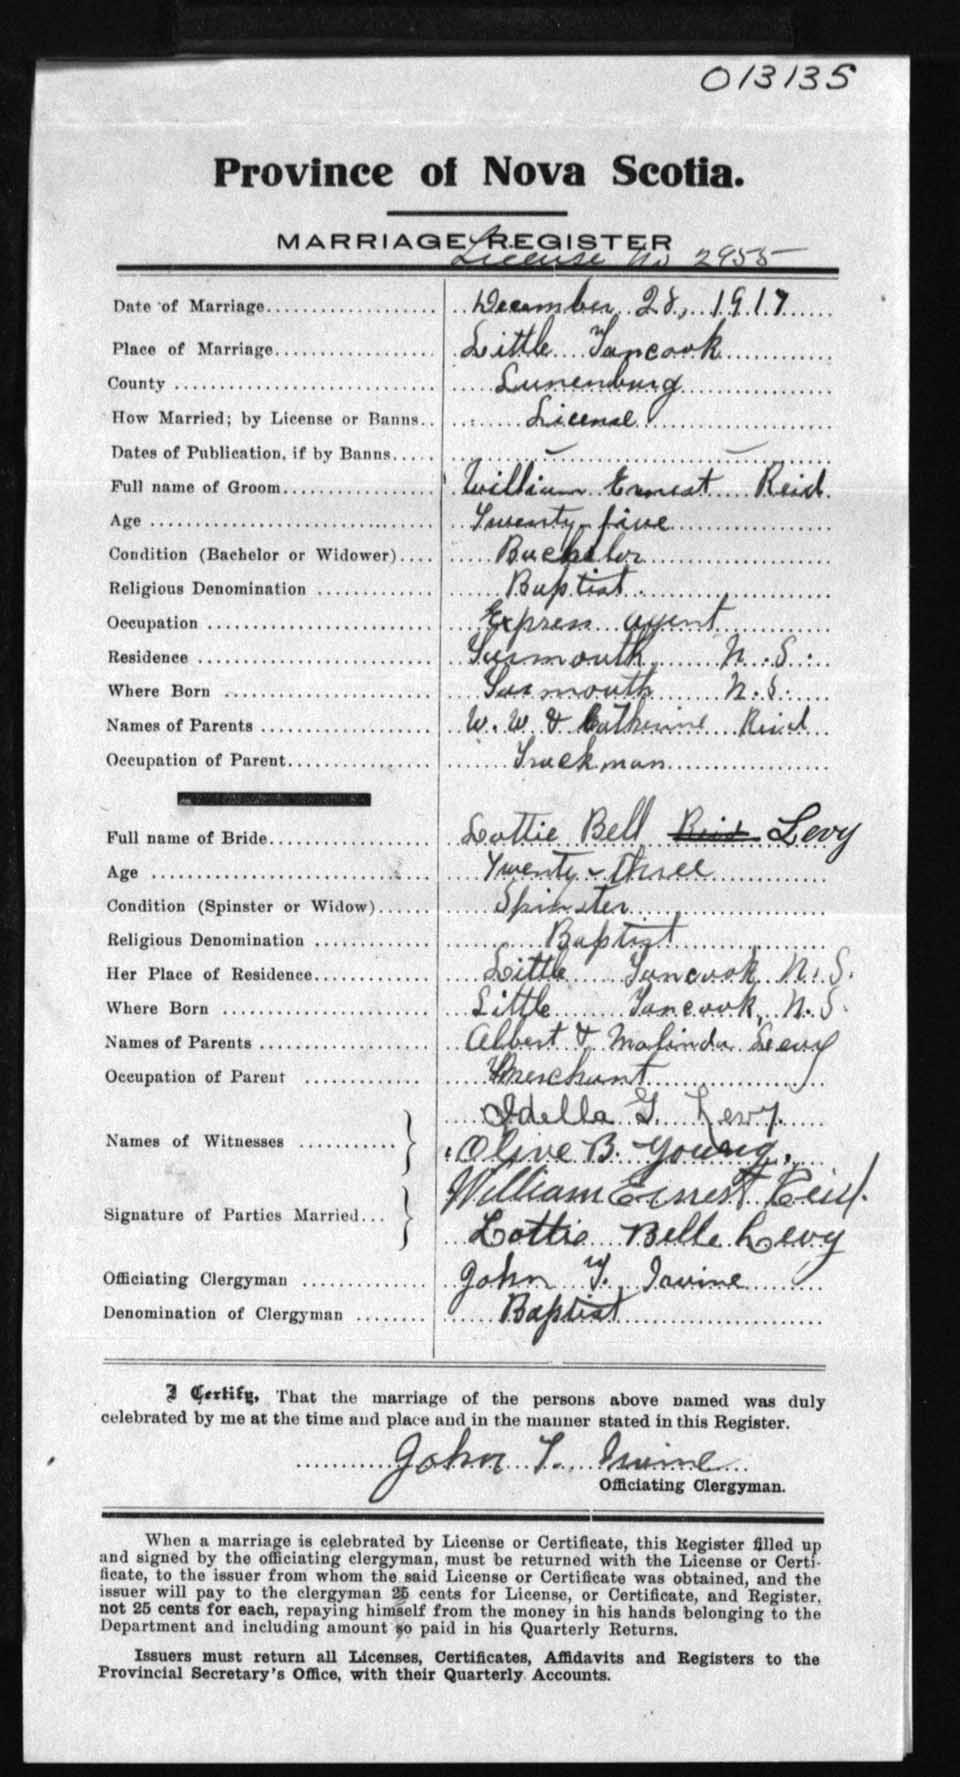 013135
Province of Nova Scotia.
MARRIAGE REGISTER
License No 2955
Date of Marriage December 28, 1917
Place of Marriage Little Tancook
County Lunenburg
How Married; by License or Banns License
Dates of Publication, if by Banns — —
Full name of Groom William Ernest Reid
Age Twenty-five
Condition (Bachelor or Widower) Bachelor
Religious Denomination Baptist
Occupation Express agent
Residence Yarmouth N.S.
Where Born Yarmouth N.S.
Names of Parents W. W. & Catherine Reid
Occupation of Parent Truckman
Full name of Bride Lottie Bell Reid Levy
Age Twenty-three
Condition (Spinster or Widow) Spinster
Religious Denomination Baptist
Her Place of Residence Little Tancook N.S.
Where Born Little Tancook, N.S.
Names of Parents Albert & Malinda Levy
Occupation of Parent Merchant
Names of Witnesses Idella G. Levy.
Olive B. Young.
Signature of Parties Married William Ernest Reid.
Lottie Belle Levy
Officiating Clergyman John Y. Irvine
Denomination of Clergyman Baptist
I Certify, That the marriage of the persons above named was duly
celebrated by me at the time and place and in the manner stated in this Register.
John Y. Irvine
Officiating Clergyman.
When a marriage is celebrated by License or Certificate, this Register filled up
and signed by the officiating clergyman, must be returned with the License or Certi-
ficate, to the issuer from whom the said License or Certificate was obtained, and the
issuer will pay to the clergyman 25 cents for License, or Certificate, and Register,
not 25 cents for each, repaying himself from the money in his hands belonging to the
Department and including amount so paid in his Quarterly Returns.
Issuers must return all Licenses, Certificates, Affidavits and Registers to the
Provincial Secretary's Office, with their Quarterly Accounts.